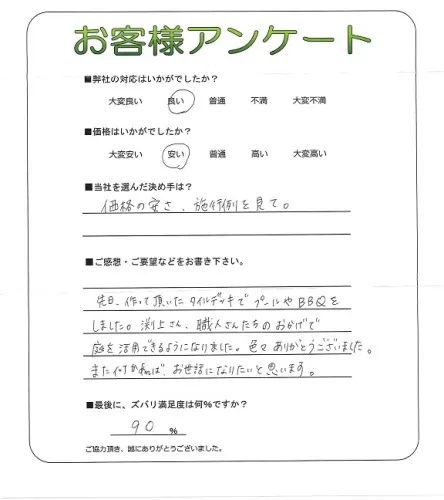 お客様アンケート
■弊社の対応はいかがでしたか?
大変良い 良い 普通 不満 大変不満
■価格はいかがでしたか?
大変安い 安い 普通 高い 大変高い
■当社を選んだ決め手は?
価格の安さ、施行例を見て。
■ご感想・ご要望などをお書き下さい。
先日、作って頂いたタイルデッキでプールやBBQを
しました。渕上さん、職人さんたちのおかげで
庭を活用できるようになりました。色々ありがとうございました。
また何かあれば、お世話になりたいと思います。
■最後に、ズバリ満足度は何%ですか?
90 %
ご協力頂き、誠にありがとうございました。